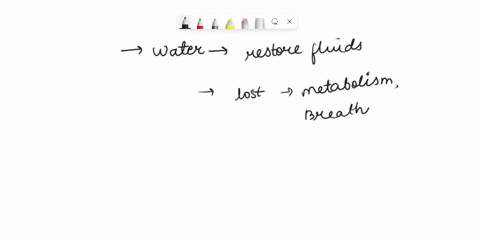 → water → restore fluids
→ lost → metabolism,
Breath